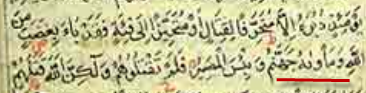 يَوْمَئِذٍ دُبُرَهُ إِلَّا مُتَحَرِّفًا لِقِتَالٍ أَوْ مُتَحَيِّزًا إِلَى فِئَةٍ فَقَدْ بَاءَ بِغَضَبٍ مِنَ
اللَّهِ وَمَأْوٰيهُ جَهَنَّمُ وَبِئْسَ الْمَصِيرُ فَلَمْ تَقْتُلُوهُمْ وَلَكِنَّ اللَّهَ قَتَلَهُمْ